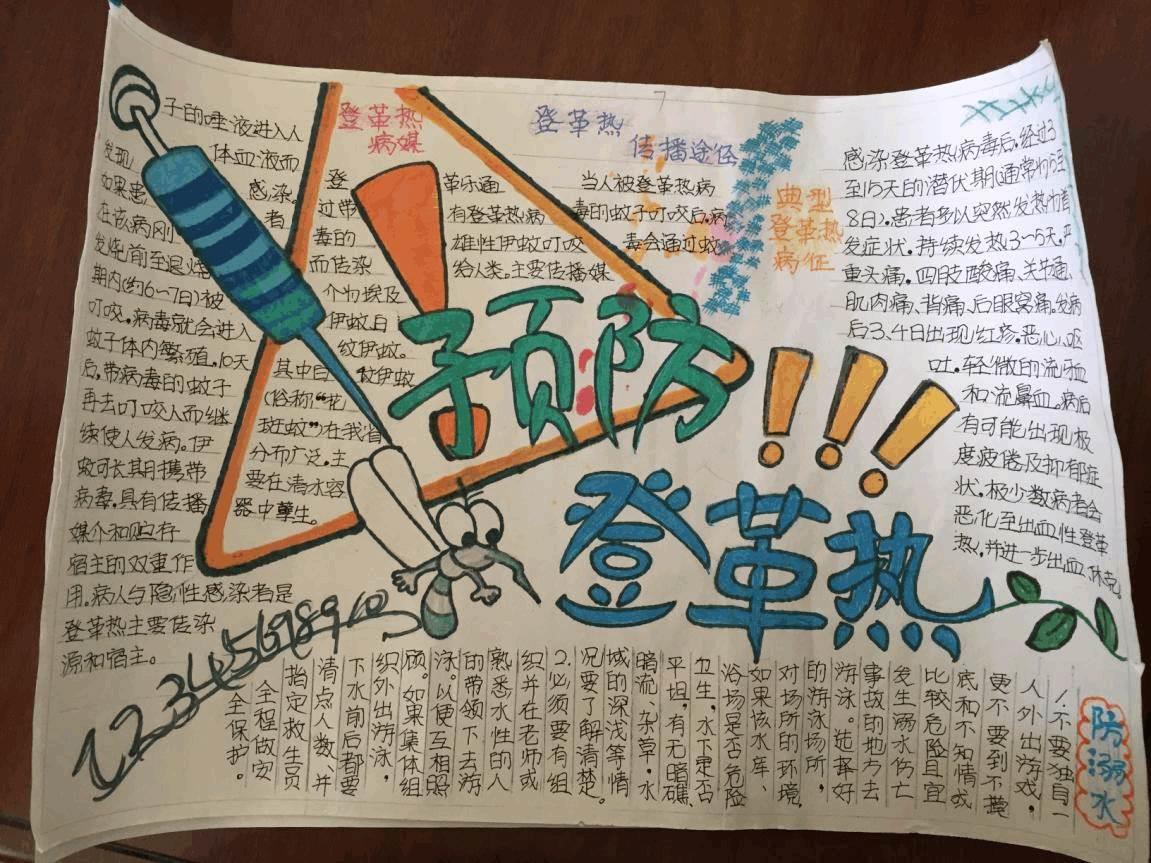 预防
登革热
!!!
登革热
病媒
登革乐通
过带有登革热病
毒的雄性伊蚊叮咬
而传染给人类.主要传播媒
介为埃及
伊蚊自
纹伊蚊。
其中白纹伊蚊
(俗称“花
斑蚊”)在我省
分布广泛.主
要在清水容
器中孽生。
登革热
传播途径
当人被登革热病
毒的蚊子叮咬后.病
毒会通过蚊
子的唾液进入人
体血液而
感染。
发现
如果患者
在该病刚
发烧前至退烧
期内(约6~7日)被
叮咬.病毒就会进入
蚊子体内繁殖.10天
后.带病毒的蚊子
再去叮咬人而继
续使人发病.伊
蚊可长期携带
病毒.具有传播
媒介和贮存
宿主的双重作
用.病人与隐性感染者是
登革热主要传染
源和宿主。
典型
登革热
病征
感染登革热病毒后.经过3
至15天的潜伏期(通常为5至
8日).患者多以突然发热为首
发症状.持续发热3~5天.严
重头痛.四肢酸痛、关节通、
肌肉痛、背痛、后眼窝痛.发病
后3、4日出现红疹.恶心、呕
吐.轻微的流牙血
和流鼻血。病后
有可能出现极
度疲倦及抑郁症
状.极少数病者会
恶化至出血性登革
热,并进一步出血、休克
12345678910
防溺水
1、不要独自一
人外出游戏,
更不要到不摸
底和不知情或
比较危险且宜
发生溺水伤亡
事故的地方去
游泳。选择好
的游泳场所,
对场所的环境,
如果该水库、
浴场是否危险
卫生,水下是否
平坦,有无暗礁、
暗流、杂草,水
域的深浅等情
况要了解清楚。
2.必须要有组
织并在老师或
熟悉水性的人
的带领下去游
泳。以便互相照
顾。如果集体组
织外出游泳,
下水前后都要
清点人数,并
指定救生员
全程做安
全保护。